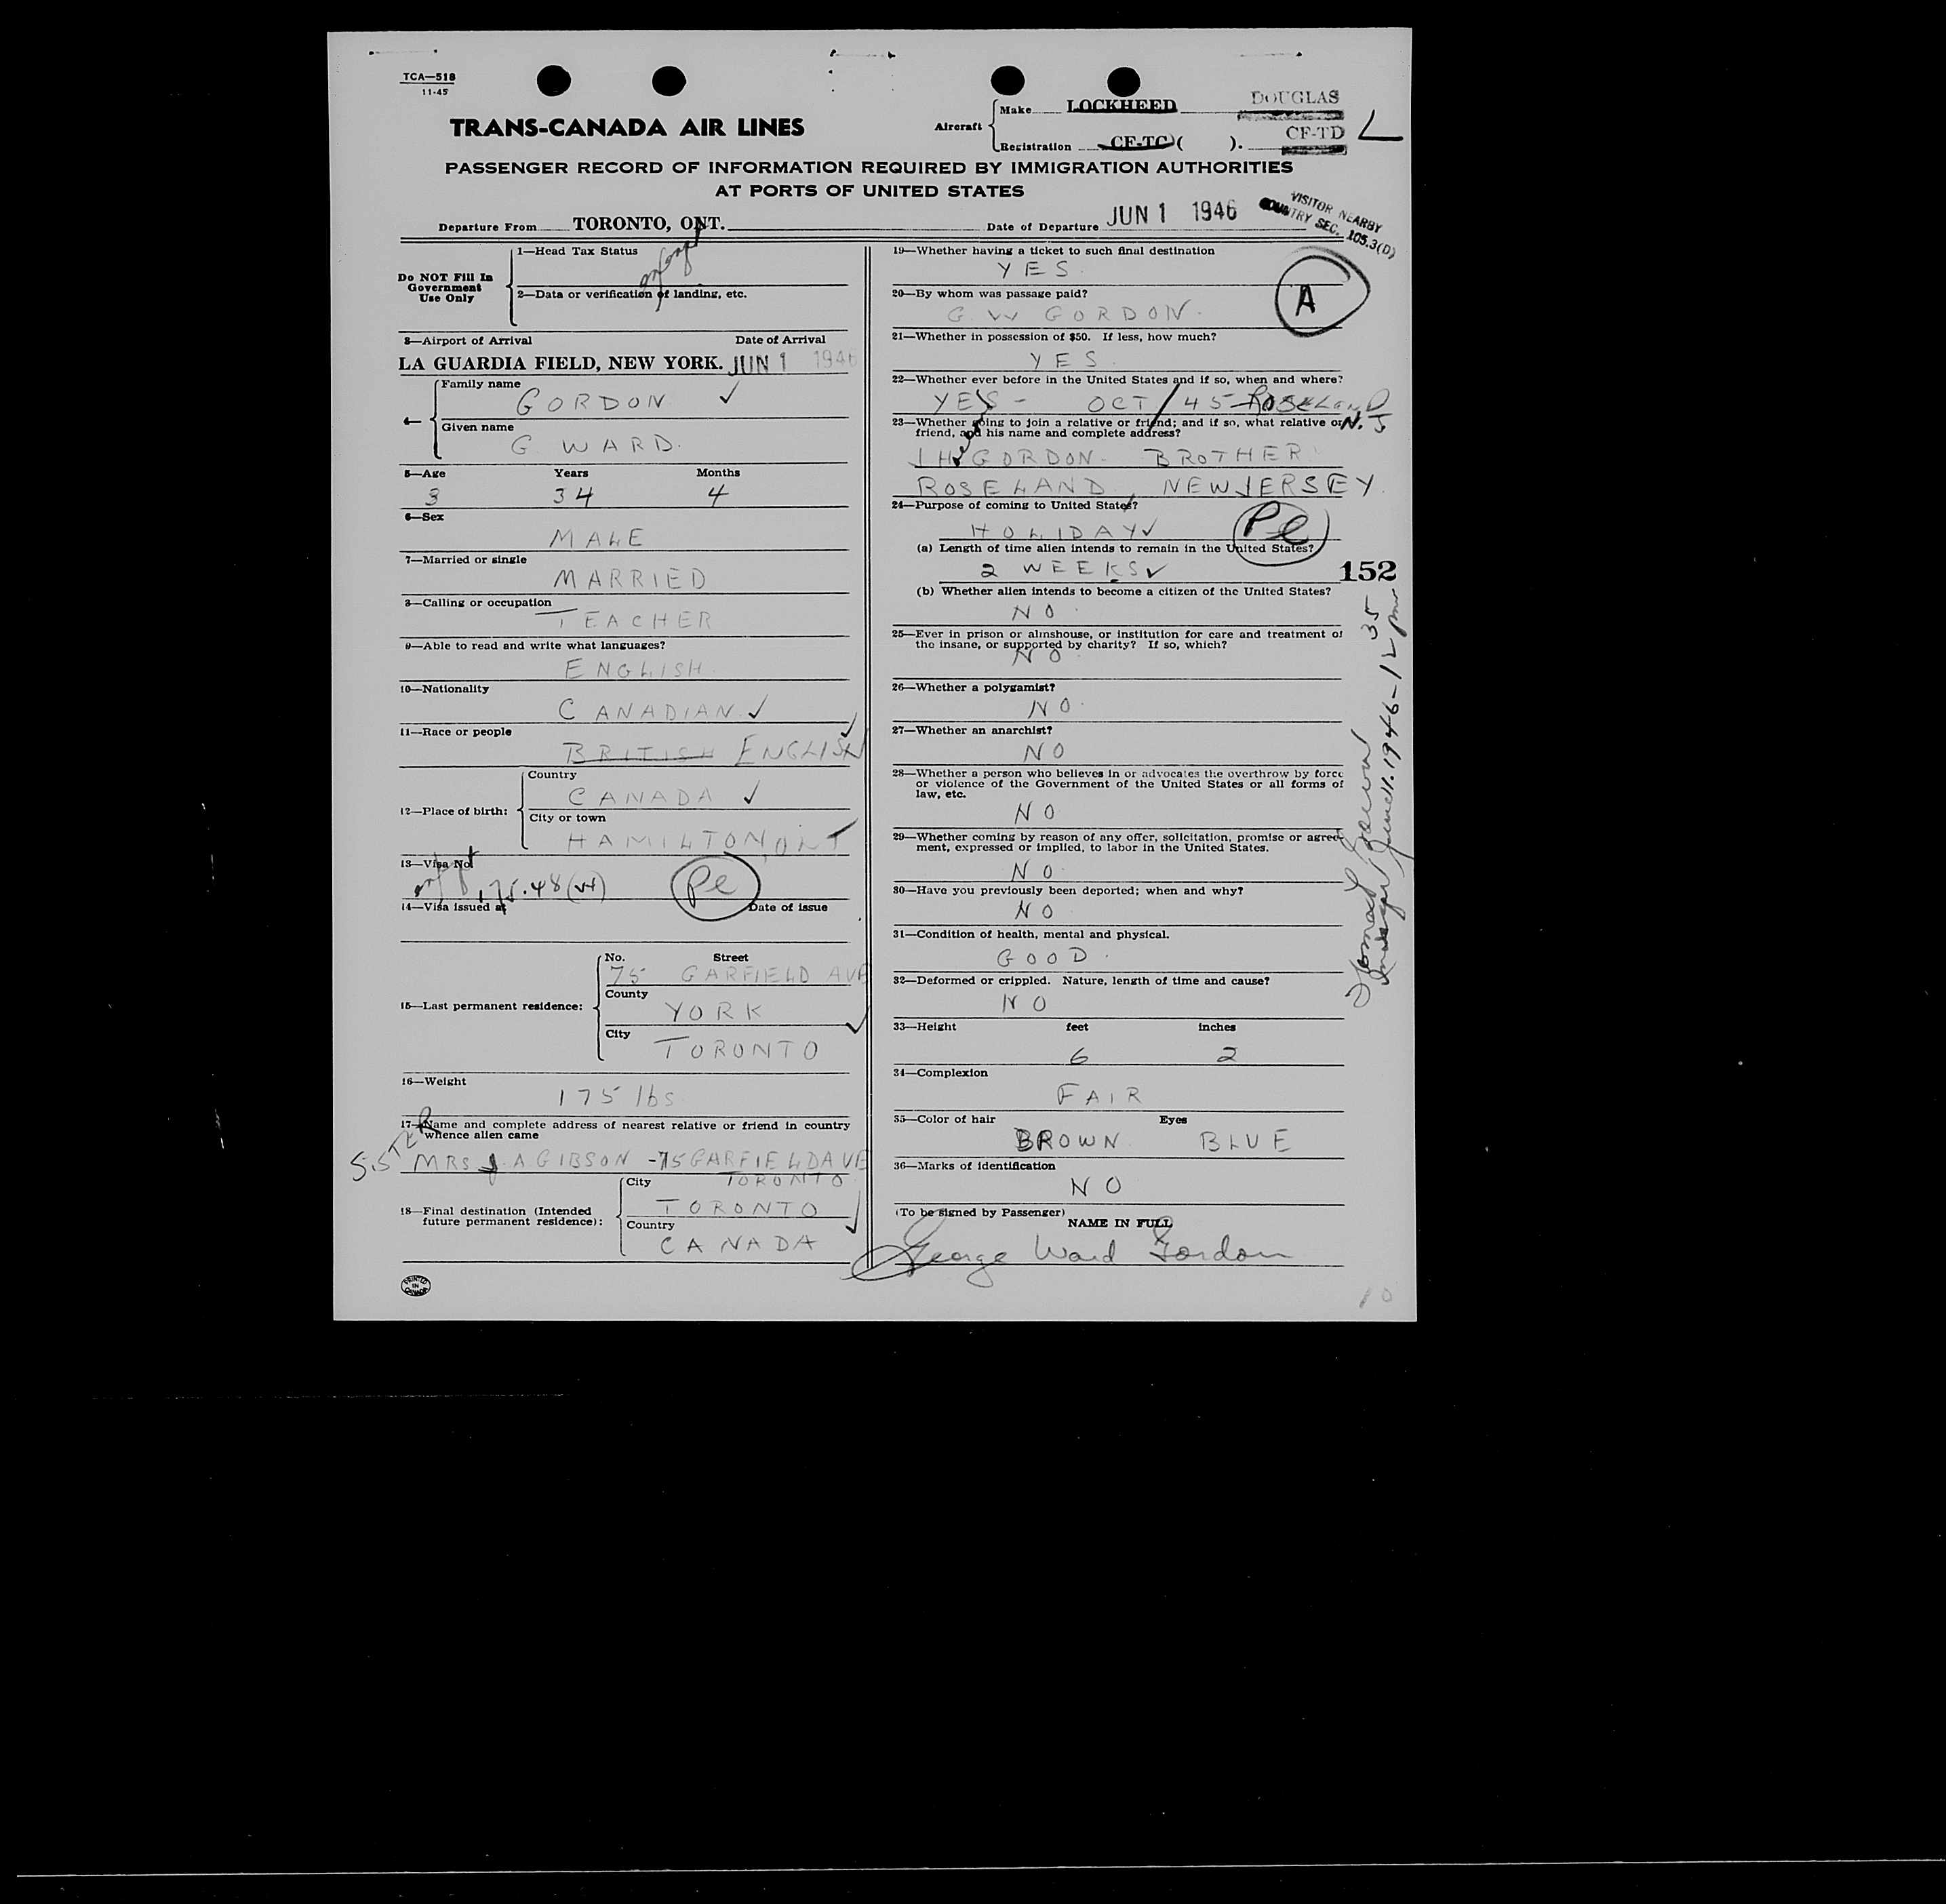 TCA—518
11-45
TRANS-CANADA AIR LINES
Aircraft
Make LOCKHEED DOUGLAS
Registration CF-TC ( ). CF-TD L
PASSENGER RECORD OF INFORMATION REQUIRED BY IMMIGRATION AUTHORITIES
AT PORTS OF UNITED STATES
Departure From TORONTO, ONT. Date of Departure JUN 1 1946
VISITOR NEARBY
COUNTRY SEC. 105.3(D)
Do NOT Fill In
Government
Use Only
1—Head Tax Status
2—Data or verification of landing, etc.
3—Airport of Arrival Date of Arrival
LA GUARDIA FIELD, NEW YORK. JUN 1 1946
4—
Family name
GORDON ✓
Given name
G WARD.
5—Age Years Months
3 34 4
6—Sex
MALE
7—Married or single
MARRIED
8—Calling or occupation
TEACHER
9—Able to read and write what languages?
ENGLISH.
10—Nationality
CANADIAN. ✓
11—Race or people
BRITISH ENGLISH ✓
12—Place of birth:
Country
CANADA ✓
City or town
HAMILTON, ONT
13—Visa No.
175.48 (v4)
Pe
14—Visa issued at Date of issue
15—Last permanent residence:
No. Street
75 GARFIELD AVE
County
YORK ✓
City
TORONTO
16—Weight
175 lbs
17—Name and complete address of nearest relative or friend in country
whence alien came
SISTER MRS J. A GIBSON - 75 GARFIELD AVE
TORONTO
18—Final destination (Intended
future permanent residence):
City
TORONTO ✓
Country
CANADA
PRINTED
IN
CANADA
19—Whether having a ticket to such final destination
YES.
20—By whom was passage paid?
G W GORDON.
A
21—Whether in possession of $50. If less, how much?
YES.
22—Whether ever before in the United States and if so, when and where?
YES - OCT / 45 - ROSELAND
N.J
23—Whether going to join a relative or friend; and if so, what relative or
friend, and his name and complete address?
J H GORDON - BROTHER
ROSELAND, NEW JERSEY.
24—Purpose of coming to United States?
HOLIDAY ✓
Pe
(a) Length of time alien intends to remain in the United States?
2 WEEKS ✓
152
(b) Whether alien intends to become a citizen of the United States?
NO.
25—Ever in prison or almshouse, or institution for care and treatment of
the insane, or supported by charity? If so, which?
NO.
26—Whether a polygamist?
NO.
27—Whether an anarchist?
NO
28—Whether a person who believes in or advocates the overthrow by force
or violence of the Government of the United States or all forms of
law, etc.
NO
29—Whether coming by reason of any offer, solicitation, promise or agree-
ment, expressed or implied, to labor in the United States.
NO.
30—Have you previously been deported; when and why?
NO
31—Condition of health, mental and physical.
GOOD.
32—Deformed or crippled. Nature, length of time and cause?
NO
33—Height feet inches
6 2
34—Complexion
FAIR
35—Color of hair Eyes
BROWN. BLUE
36—Marks of identification
NO
(To be signed by Passenger)
NAME IN FULL
George Ward Gordon